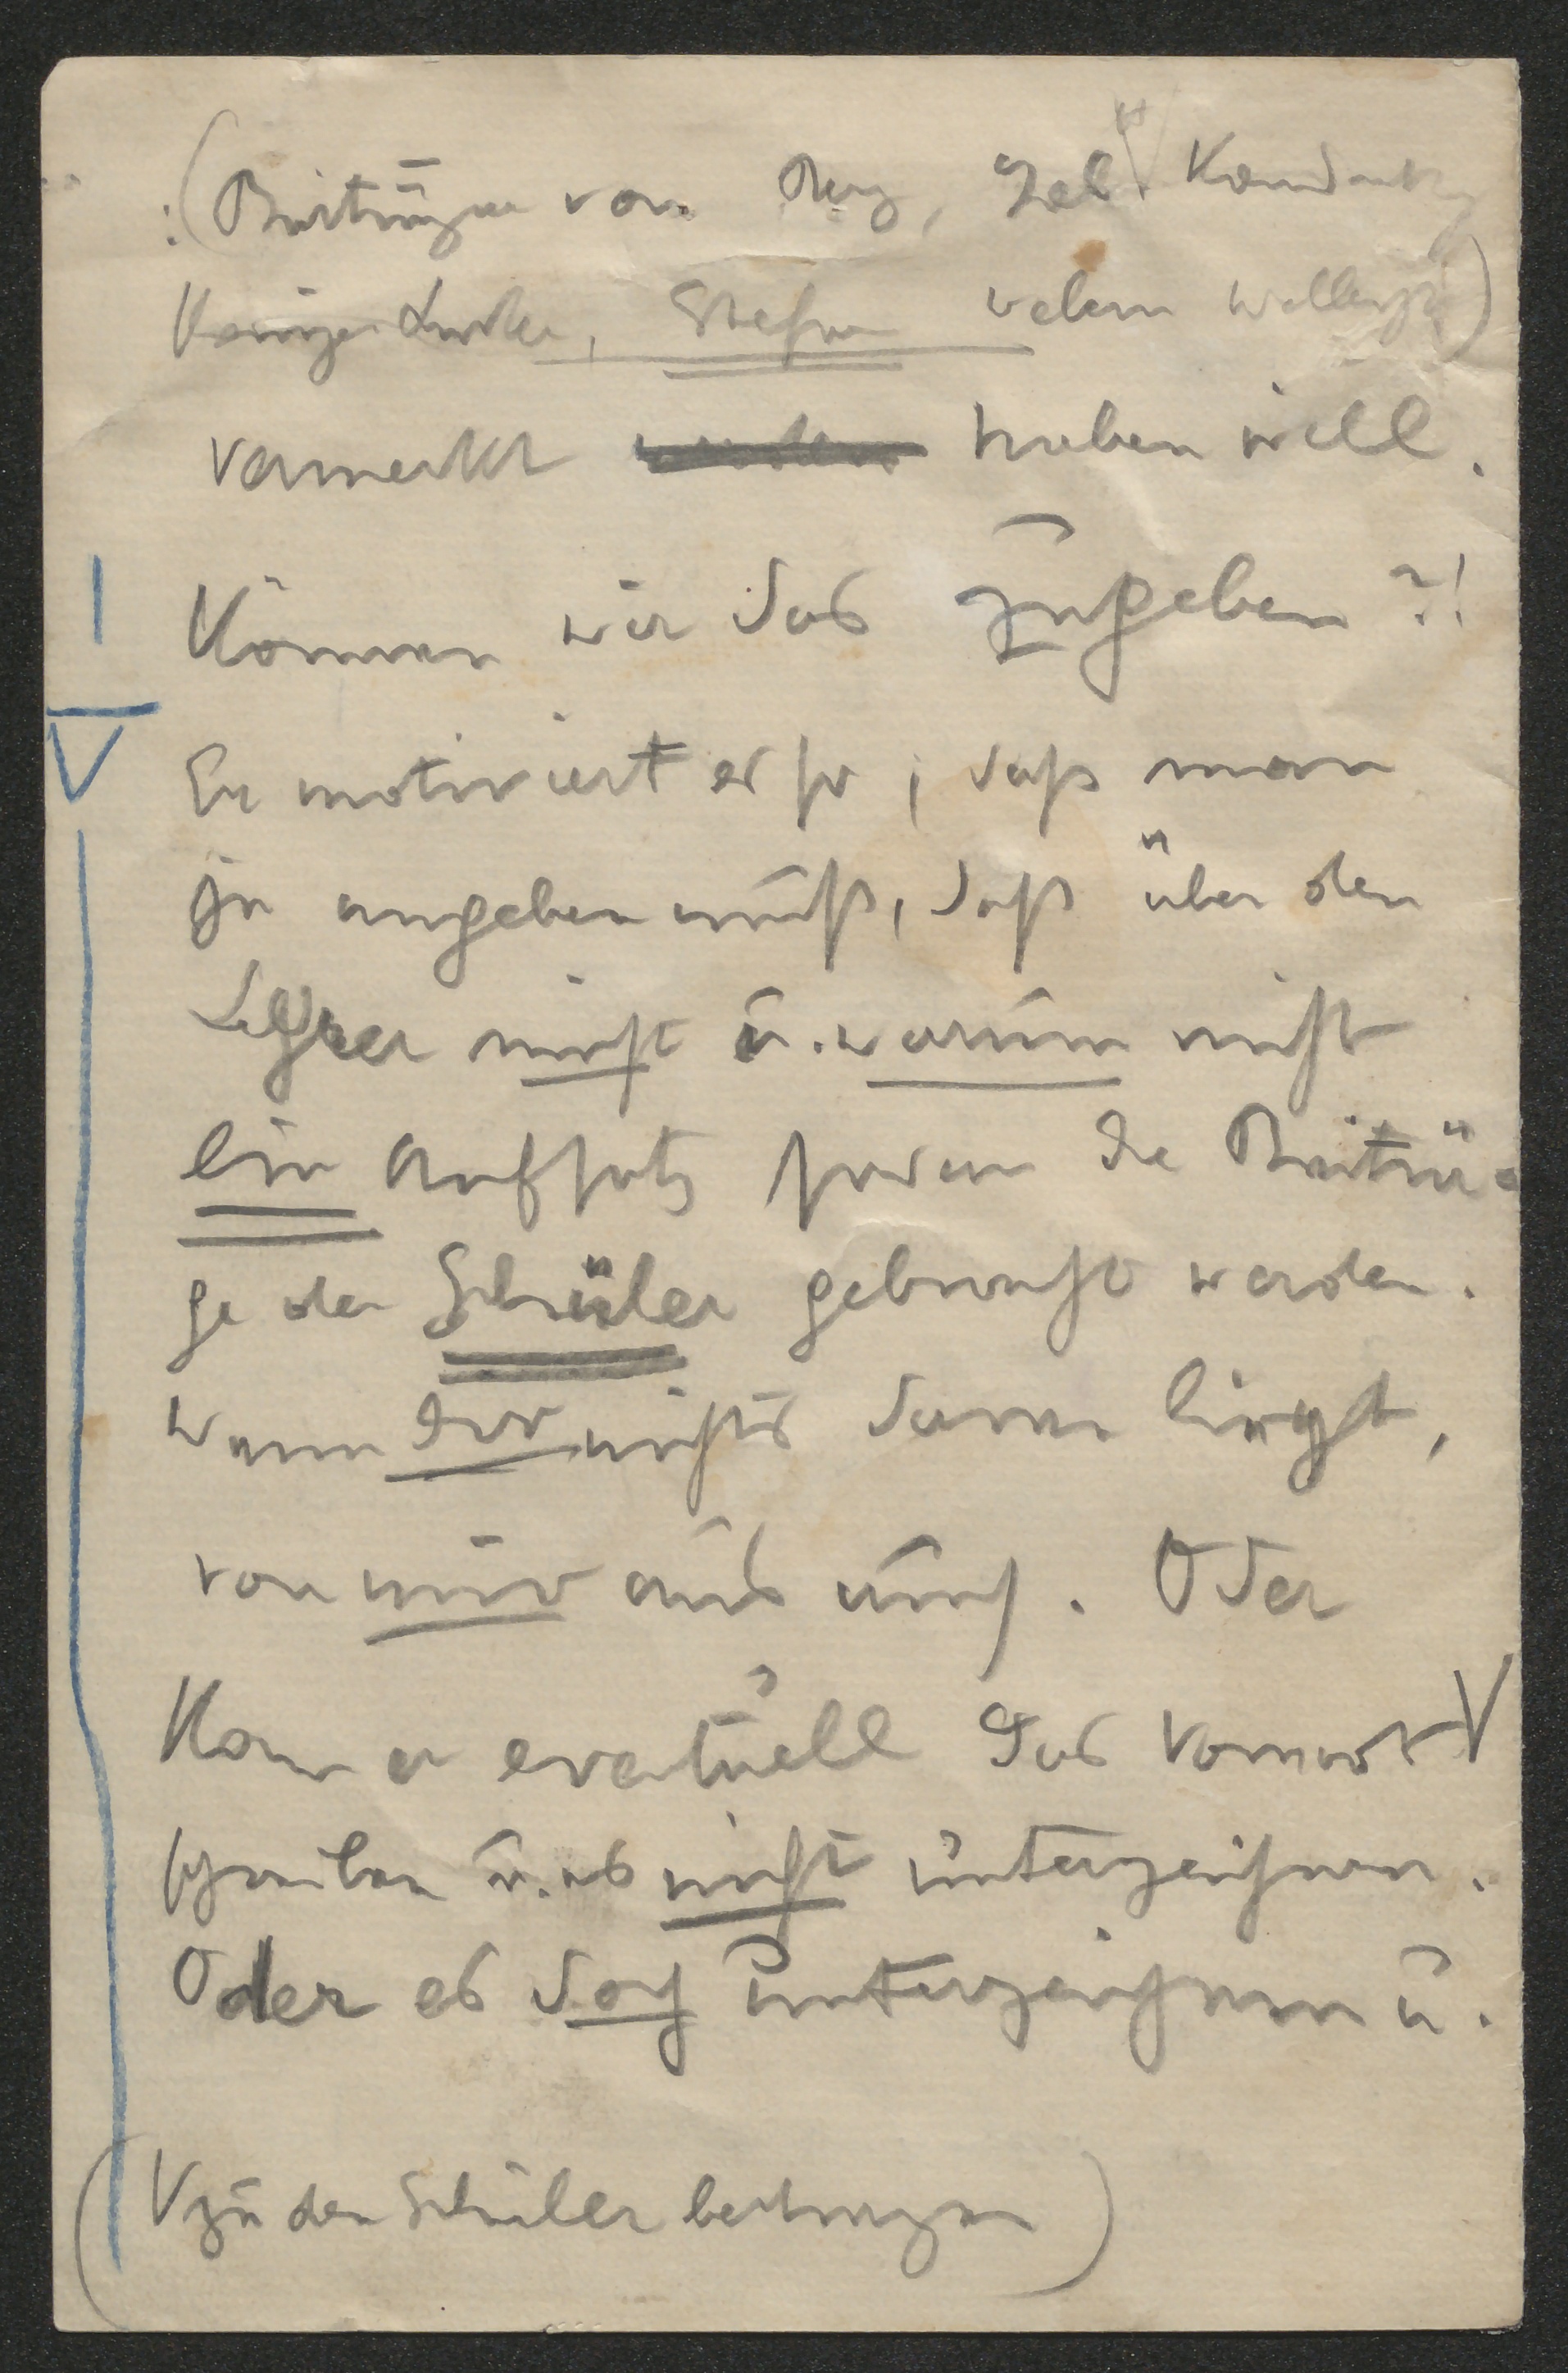 :(Beiträgen von Berg, Jal. Kandinsky,
Königer, Linke, Stefan, welen Wellesz)
vermerkt haben will.
Können wir das zugeben?!
Er motiviert es so, daß man
ja angeben muß, daß über den
Lehrer nicht u. warum nicht
ein Aufsatz sondern die Beiträ-
ge der Schüler gebracht werden.
Wenn dir nichts daran liegt,
von mir aus auch. Oder
Kann er eventuell das Vorwort V
schreiben u. es nicht unterzeichnen.
Oder es doch unterzeichnen u.
(V zu den Schülerbeiträgen)